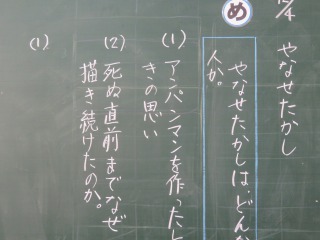 12/4
やなせたかし
め
やなせたかしは、どんな
人か。
(1) アンパンマンを作ったと
きの思い
(2) 死ぬ直前までなぜ
描き続けたのか。
(1)